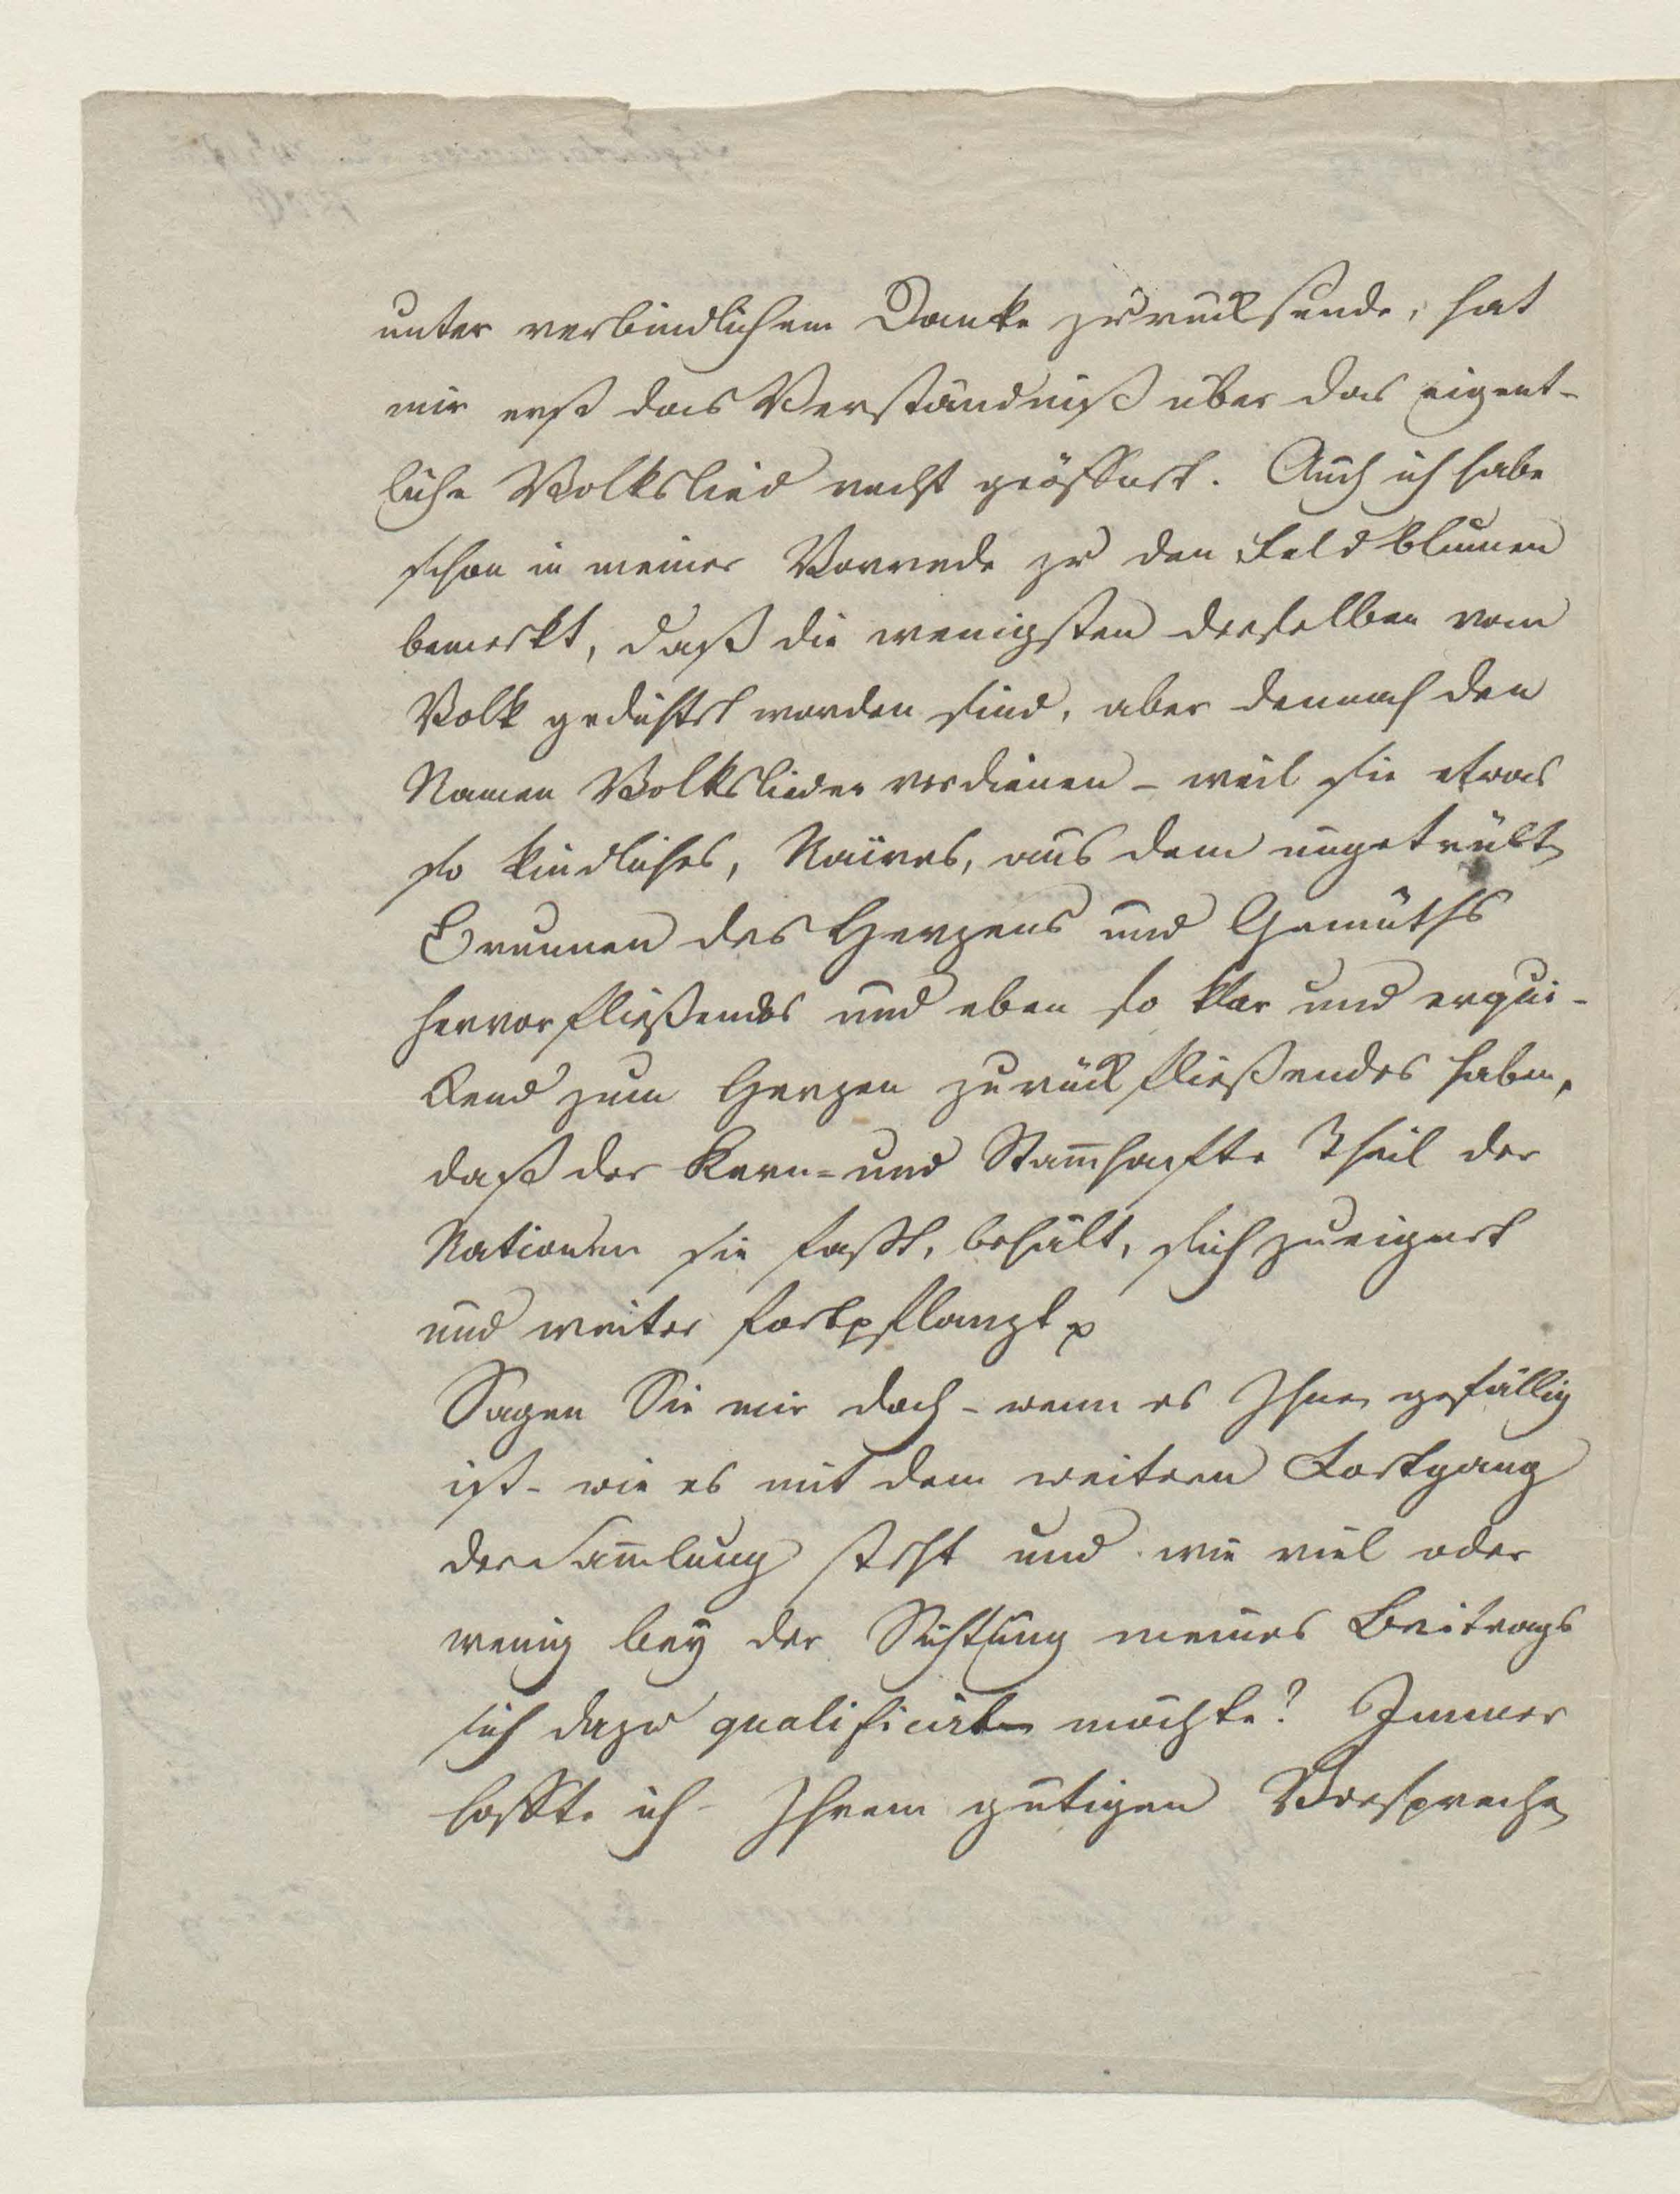 unter verbindlichem Danke zurücksende, hat
mir erst das Verständniß über das eigent-
liche Volkslied recht geöffnet. Auch ich habe
schon in meiner Vorrede zu den Feldblumen
bemerkt, daß die wenigsten derselben vom
Volk gedichtet worden sind, aber dennoch den
Namen Volkslieder verdienen - weil sie etwas
so kindliches, Naives, aus dem ungetrübten
Brunnen des Herzens und Gemüths
hervorfließendes und eben so klar und erqui-
ckend zum Herzen zurückfließendes haben,
daß der Kern= und Stam̄hafte Theil der
Nationen sie faßt, behält, sich zueignet
und weiter fortpflanzt p
Sagen Sie mir doch - wenn es Ihnen gefällig
ist - wie es mit dem weitern Fortgang
der Sam̄lung steht und wie viel oder
wenig bey der Sichtung meines Beitrags
sich dazu qualificirten möchte? Immer
hoffte ich Ihrem gütigen Versprechen